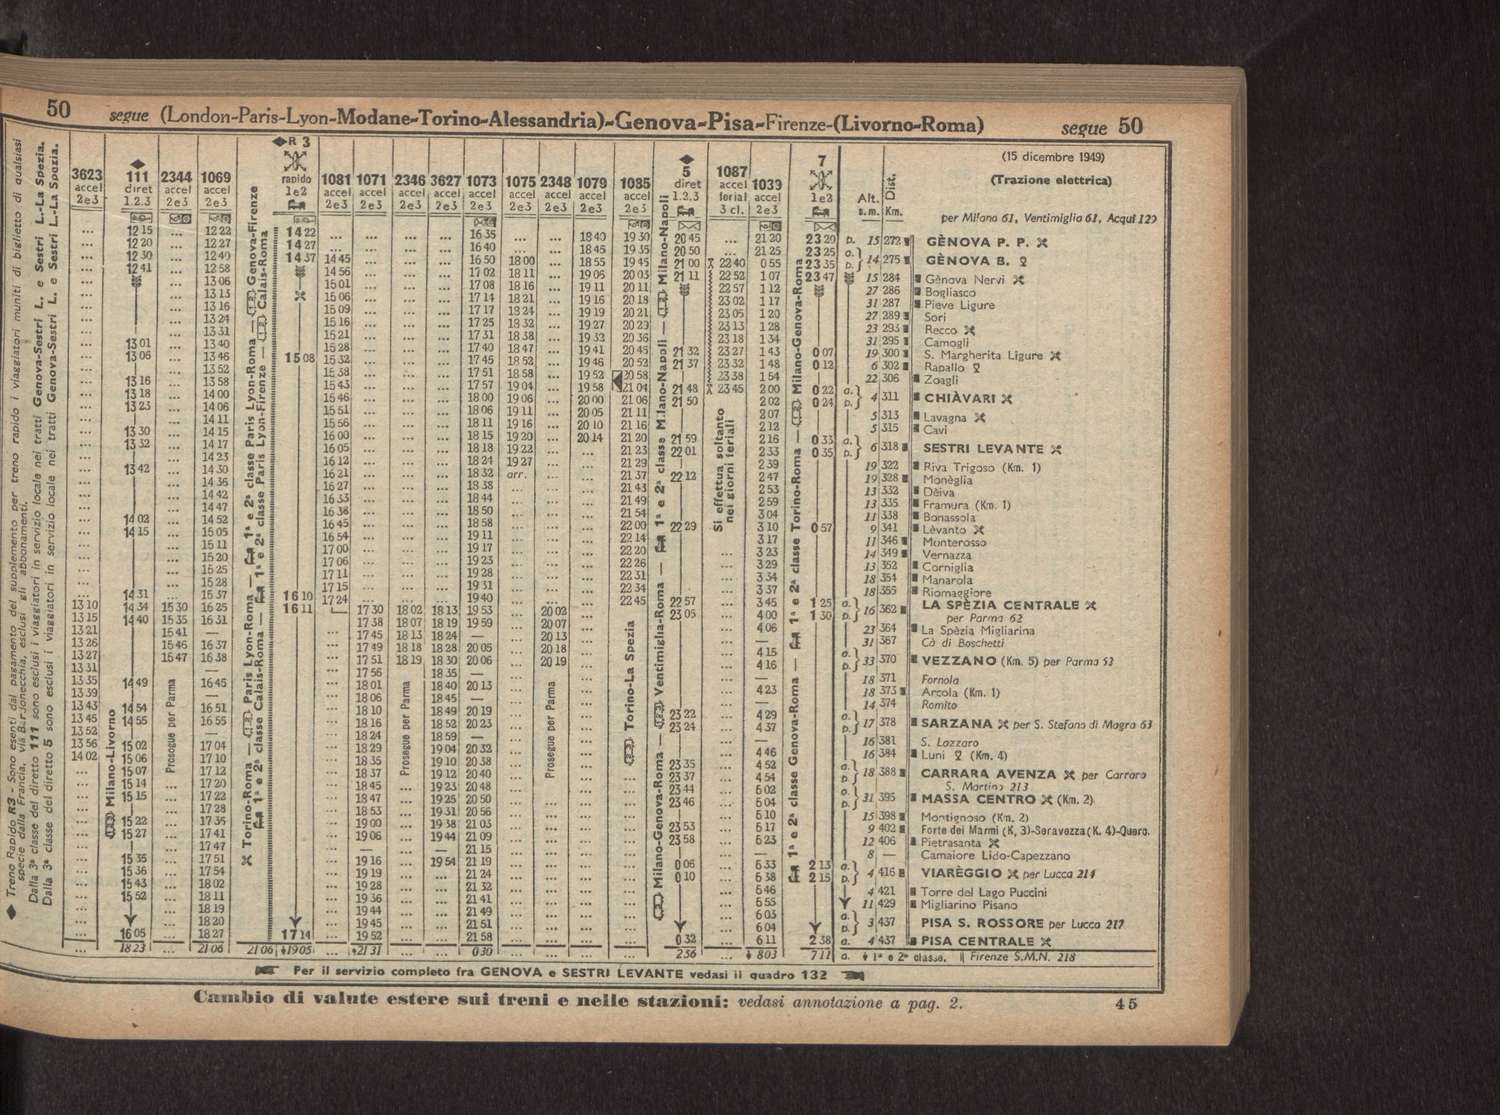 50 segue (London-Paris-Lyon-Modane-Torino-Alessandria)-Genova-Pisa-Firenze-(Livorno-Roma) segue 50
◆ Treno Rapido R3 - Sono esenti dal pagamento del supplemento per treno rapido i viaggiatori muniti di biglietto di qualsiasi
specie dalla Francia, via Bardonecchia, esclusi gli abbonamenti.
Dalla 3ª classe del diretto 111 sono esclusi i viaggiatori in servizio locale nei tratti Genova-Sestri L. e Sestri L.-La Spezia.
Dalla 3ª classe del diretto 5 sono esclusi i viaggiatori in servizio locale nei tratti Genova-Sestri L. e Sestri L-La Spezia.
3623 accel 2e3
◆ 111 diret 1.2.3
2344 accel 2e3
1069 accel 2e3
◆R 3 rapido 1e2
1081 accel 2e3
1071 accel 2e3
2346 accel 2e3
3627 accel 2e3
1073 accel 2e3
1075 accel 2e3
2348 accel 2e3
1079 accel 2e3
1085 accel 2e3
◆ 5 diret 1.2.3
1087 accel ferial 3 cl.
1039 accel 2e3
7 1e2
Alt. s.m.
Dist. Km.
(15 dicembre 1949)
(Trazione elettrica)
per Milano 61, Ventimiglia 61, Acqui 129
12 15 12 22 14 22 16 35 18 40 19 30 20 45 21 20 23 20 p. 15 272 GÈNOVA P. P.
12 20 12 27 14 27 16 40 18 45 19 35 20 50 21 25 23 25 a.
12 30 12 40 14 37 14 45 16 50 18 00 18 55 19 45 21 00 22 40 0 55 23 35 p. 14 275 GÈNOVA B.
12 41 12 58 14 56 17 02 18 11 19 06 20 03 21 11 22 52 1 07 23 47 15 284 Gènova Nervi
13 06 15 01 17 08 18 16 19 11 20 11 22 57 1 12 27 286 Bogliasco
13 13 15 06 17 14 18 21 19 16 20 18 23 02 1 17 31 287 Pieve Ligure
13 16 15 09 17 17 18 24 19 19 20 21 23 05 1 20 27 289 Sori
13 24 15 16 17 25 18 32 19 27 20 29 23 13 1 28 23 293 Recco
13 31 15 21 17 31 18 38 19 32 20 36 23 18 1 34 31 295 Camogli
13 01 13 40 15 28 17 40 18 47 19 41 20 45 21 32 23 27 1 43 0 07 19 300 S. Margherita Ligure
13 06 13 46 15 08 15 32 17 45 18 52 19 46 20 52 21 37 23 32 1 48 0 12 6 302 Rapallo
13 52 15 38 17 51 18 58 19 52 20 58 23 38 1 54 22 306 Zoagli
13 16 13 58 15 43 17 57 19 04 19 58 21 04 21 48 23 45 2 00 0 22 a.
13 18 14 00 15 46 18 00 19 06 20 00 21 06 21 50 2 02 0 24 p. 4 311 CHIÀVARI
13 23 14 06 15 51 18 06 19 11 20 05 21 11 2 07 5 313 Lavagna
14 11 15 56 18 11 19 16 20 10 21 16 2 12 5 315 Cavi
13 30 14 15 16 00 18 15 19 20 20 14 21 20 21 59 2 16 0 33 a.
13 32 14 17 16 05 18 18 19 22 21 23 22 01 2 33 0 35 p. 6 318 SESTRI LEVANTE
14 23 16 12 18 24 19 27 21 29 2 39 19 322 Riva Trigoso (Km. 1)
13 42 14 30 16 21 18 32 arr. 21 37 22 12 2 47 19 328 Monèglia
14 36 16 27 18 38 21 43 2 53 13 332 Dèiva
14 42 16 33 18 44 21 49 2 59 13 335 Framura (Km. 1)
14 47 16 38 18 50 21 54 3 04 11 338 Bonassola
14 02 14 52 16 45 18 58 22 00 22 29 3 10 0 57 9 341 Lèvanto
14 15 15 05 16 54 19 11 22 14 3 17 11 346 Monterosso
15 11 17 00 19 17 22 20 3 23 14 349 Vernazza
15 20 17 06 19 23 22 26 3 29 13 352 Corniglia
15 25 17 11 19 28 22 31 3 34 18 354 Manarola
15 28 17 15 19 31 22 34 3 37 18 355 Riomaggiore
14 31 15 37 16 10 17 24 19 40 22 45 22 57 3 45 1 25 a. LA SPÈZIA CENTRALE
13 10 14 34 15 30 16 25 16 11 17 30 18 02 18 13 19 53 20 02 23 05 4 00 1 30 p. 16 362 per Parma 62
13 15 14 40 15 35 16 31 17 38 18 07 18 19 19 59 20 07 4 06 23 364 La Spèzia Migliarina
13 21 15 41 — 17 45 18 13 18 24 — 20 13 — 31 367 Cà di Boschetti
13 26 15 46 16 37 17 49 18 18 18 28 20 05 20 18 4 15 a.
13 27 15 47 16 38 17 51 18 19 18 30 20 06 20 19 4 16 p. 33 370 VEZZANO (Km. 5) per Parma 62
13 31 — 17 56 18 35 — — 18 371 Fornola
13 35 14 49 16 45 18 01 18 40 20 13 4 23 18 373 Arcola (Km. 1)
13 39 — 18 06 18 45 — — 14 374 Romito
13 43 14 54 16 51 18 10 18 49 20 19 23 22 4 29 a.
13 45 14 55 16 55 18 16 18 52 20 23 23 24 4 37 p. 17 378 SARZANA per S. Stefano di Magra 63
13 52 — 18 24 18 59 — — 16 381 S. Lazzaro
13 56 15 02 17 04 18 29 19 04 20 32 4 46 16 384 Luni (Km. 4)
14 02 15 06 17 10 18 35 19 10 20 38 23 35 4 52 a.
15 07 17 12 18 37 19 12 20 40 23 37 4 54 p. 18 388 CARRARA AVENZA per Carrara S. Martino 213
15 14 17 20 18 45 19 23 20 48 23 44 5 02 a.
15 15 17 22 18 47 19 25 20 50 23 46 5 04 p. 31 395 MASSA CENTRO (Km. 2)
17 28 18 53 19 31 20 56 5 10 15 398 Montignoso (Km. 2)
15 22 17 35 19 00 19 38 21 03 23 53 5 17 9 402 Forte dei Marmi (K. 3)-Seravezza (K. 4)-Querc.
15 27 17 41 19 06 19 44 21 09 23 58 5 23 12 406 Pietrasanta
17 47 — — 21 15 — 8 — Camaiore Lido-Capezzano
15 35 17 51 19 16 19 54 21 19 0 06 5 33 2 13 a.
15 36 17 54 19 19 21 24 0 10 5 38 2 15 p. 4 416 VIARÈGGIO per Lucca 214
15 43 18 02 19 28 21 32 5 46 4 421 Torre del Lago Puccini
15 52 18 11 19 36 21 41 5 55 11 429 Migliarino Pisano
18 19 19 44 21 49 6 03 a.
18 20 19 45 21 51 6 04 p. 3 437 PISA S. ROSSORE per Lucca 217
16 05 18 27 17 14 19 52 21 58 0 32 6 11 2 38 a. 4 437 PISA CENTRALE
18 23 21 06 21 06 19 05 21 31 0 30 2 36 8 03 7 11 a. 1ª e 2ª classe. Firenze S.M.N. 218
Milano-Livorno
Prosegue per Parma
Torino-Roma — Paris Lyon-Roma — 1ª e 2ª classe Paris Lyon-Roma — Genova-Firenze
1ª e 2ª classe Calais-Roma — 1ª e 2ª classe Paris Lyon-Firenze — Calais-Roma
Prosegue per Parma
Prosegue per Parma
Torino-La Spezia
Milano-Genova-Roma — Ventimiglia-Roma — 1ª e 2ª classe Milano-Napoli — Milano-Napoli
Si effettua soltanto nei giorni feriali
1ª e 2ª classe Genova-Roma — 1ª e 2ª classe Torino-Roma — Milano-Genova-Roma
Per il servizio completo fra GENOVA e SESTRI LEVANTE vedasi il quadro 132
Cambio di valute estere sui treni e nelle stazioni: vedasi annotazione a pag. 2.
45